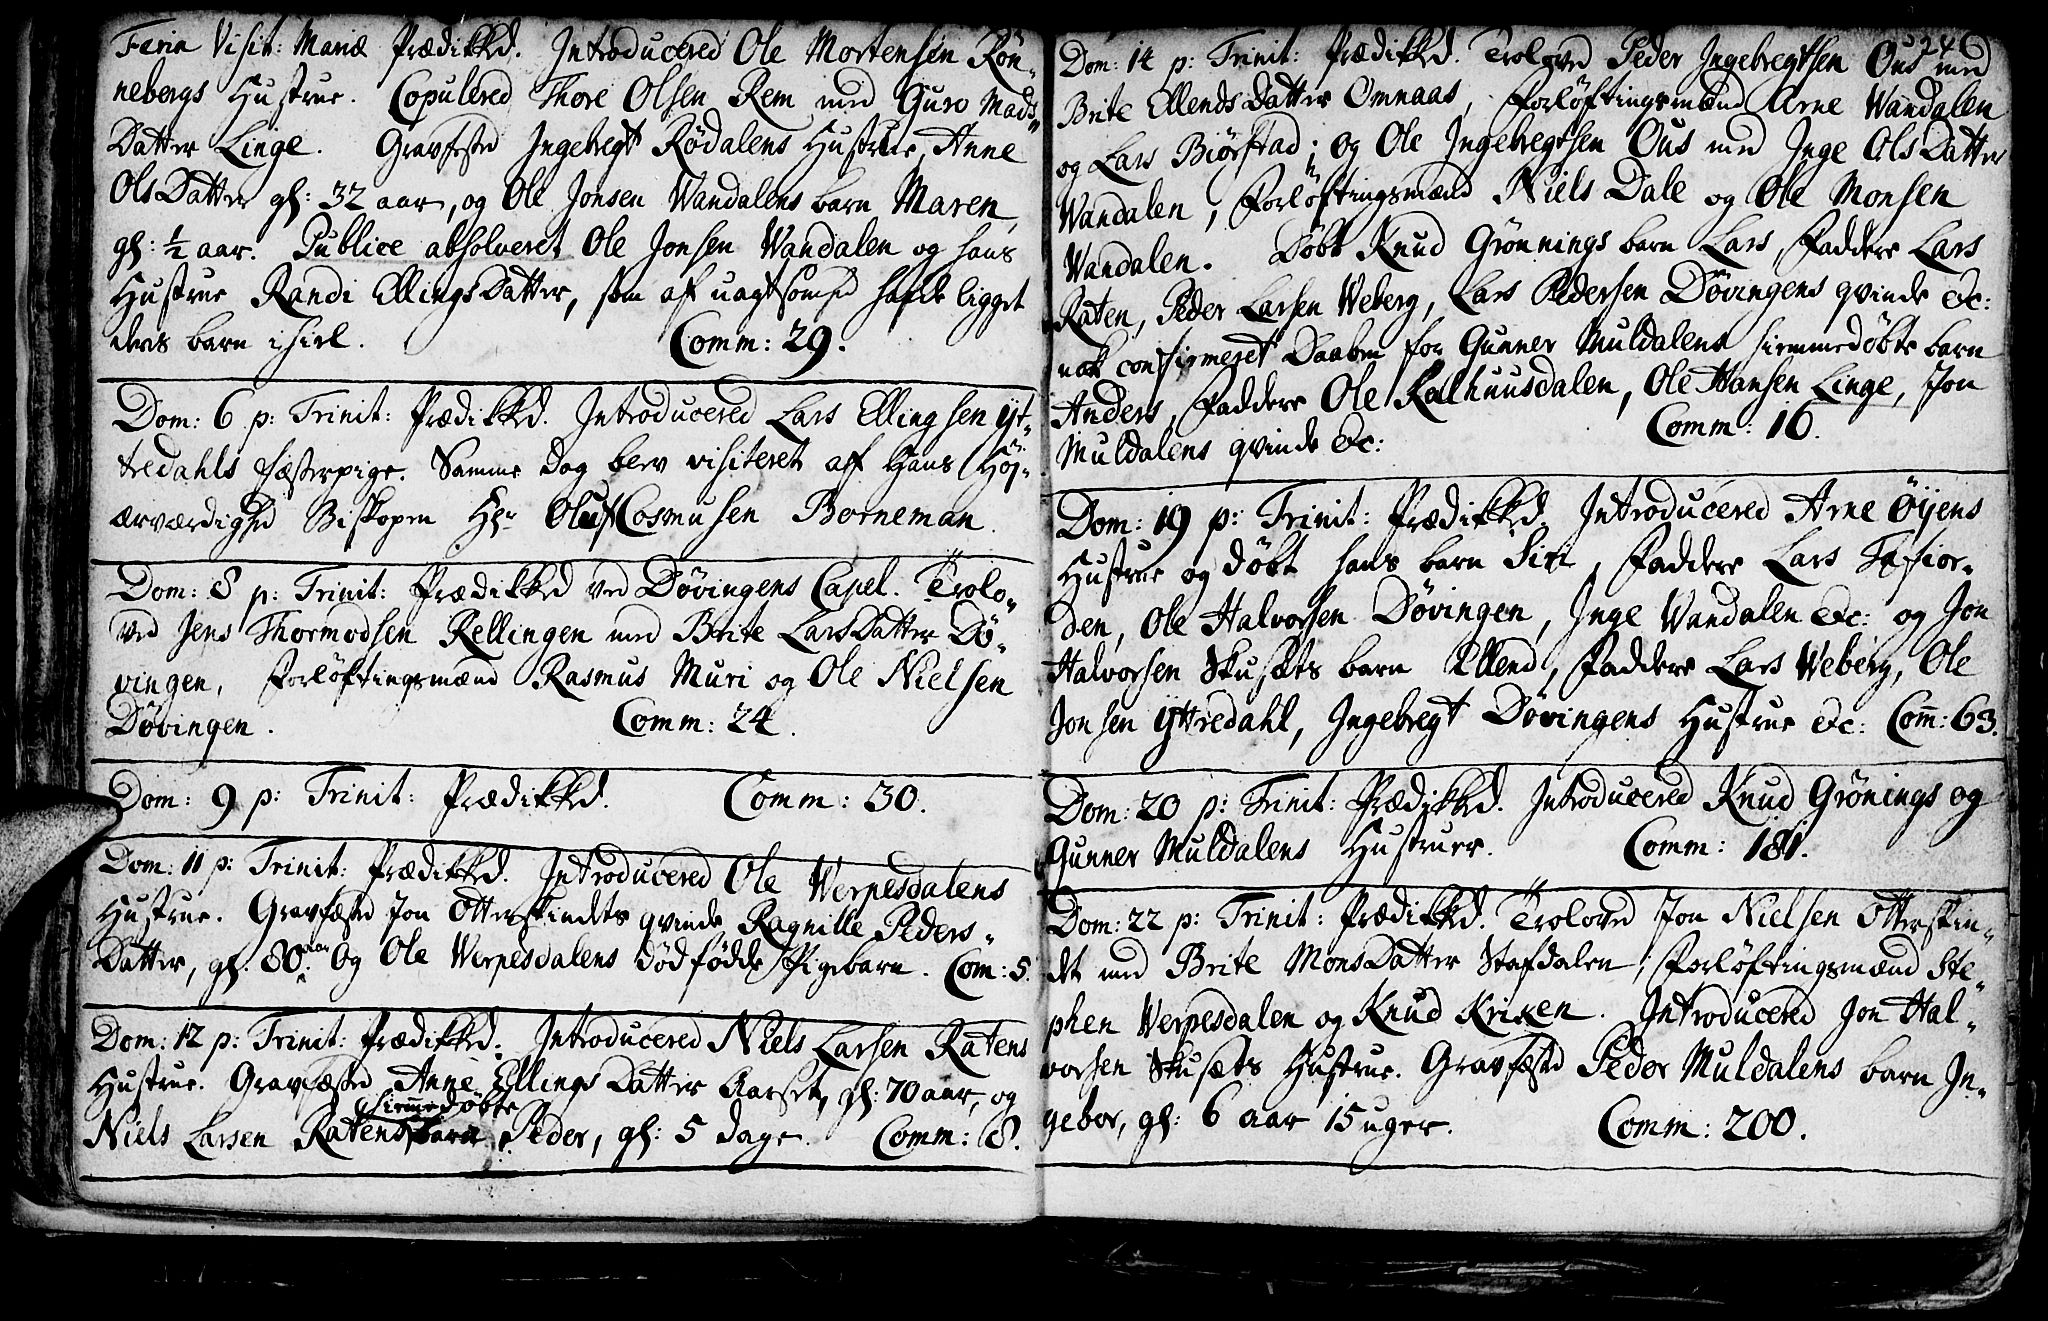 Feria Visit: Mariæ Prædikked. Introducered Ole Mortensen Rön-
nebergs Hustrue. Copulered Thore Olsen Rem med Guro Mads-
Datter Linge. Gravfested Ingebregt Rödalens Hustrue, Anne
OlsDatter gl: 32 aar, og Ole Jonsen Vandalens barn Maren,
gl: ½ aar. Publice absolveret Ole Jonsen Vandalen og hans
Hustrue Randi EllingsDatter, som af uagtsomhed hafde ligget
deres barn ihiel. Comm: 29.
Dom: 6 p: Trinit: Prædikked. Introducered Lars Ellingsen yt-
tredahls fæsterpige. Samme dag blev visiteret aff Hans Höj-
ærværdighed Biskopen Hr Oluf Cosmusen Borneman.
Dom: 8 p: Trinit: Prædikked ved Dövingens Capel. Trolo-
ved Jens Thormodsen Rellingen med Brite LarsDatter Dö-
vingen, Forlöftingsmænd Rasmus Muri og Ole Nielsen
Dövingen. Comm: 24.
Dom: 9 p: Trinit: Prædikked. Comm: 30.
Dom: 11 p: Trinit: Prædikked. Introducered Ole Werpesdalens
Hustrue. Gravfæsted Jon Otterskindets qvinde Ragnille Peders-
Datter, gl: 80 aar. Og Ole Werpesdalens dödfödde Pigebarn. Com: 5.
Dom: 12 p: Trinit: Prædikked. Introducered Niels Larsen Ratens
Hustrue. Gravfæsted Anne EllingsDatter Aarset, gl: 70 aar, og
hiemmedöbte
Niels Larsen Ratens barn Peder, gl: 5 dage. Comm: 8.
246
Dom: 14 p: Trinit: Prædikked. Trolovd Peder Ingebregtsen Ous med
Brite EllendsDatter Omnaas, Forlöftingsmænd Arne Vandalen
og Lars Biörstad; og Ole Ingebregtsen Ous med Inge OlsDatter
Vandalen, Forlöftingsmænd Niels Dale og Ole Monsen
Vandalen. Döbt Knud Grönnings barn Lars, Faddere Lars
Raten, Peder Larsen Weberg, Lars Pedersen Dövingens qvinde etc:
nok confirmeret Daaben for Gunner Muldalens hiemmedöbte barn
Anders, Faddere Ole Kalhuusdalen, Ole Hansen Linge, Jon
Muldalens qvinde etc: Comm: 16.
Dom: 19 p: Trinit: Prædikked. Introducered Arne Öijens
Hustrue og döbt hans barn Siri, Faddere Lars Tafior-
den, Ole Halvorsen Dövingen, Inge Vandalen etc: og Jon
Halvorsen Skusets barn Ellend, Faddere Lars Weberg, Ole
Jonsen yttredahl, Ingebregt Dövingens Hustrue etc: Com: 63.
Dom: 20 p: Trinit: Prædikked. Introducered Knud Grönings og
Gunner Muldalens Hustruer. Comm: 181.
Dom: 22 p: Trinit: Prædikked. Trolovd Jon Nielsen Otterskin-
det med Brite MonsDatter Stafdalen; Forlöftingsmænd Ste-
phen Werpesdalen og Knud Kriken. Introducered Jon Hal-
vorsen Skusets Hustrue. Gravfæsted Peder Muldalens barn In-
gebor, gl: 6 aar 15 uger. Comm: 200.